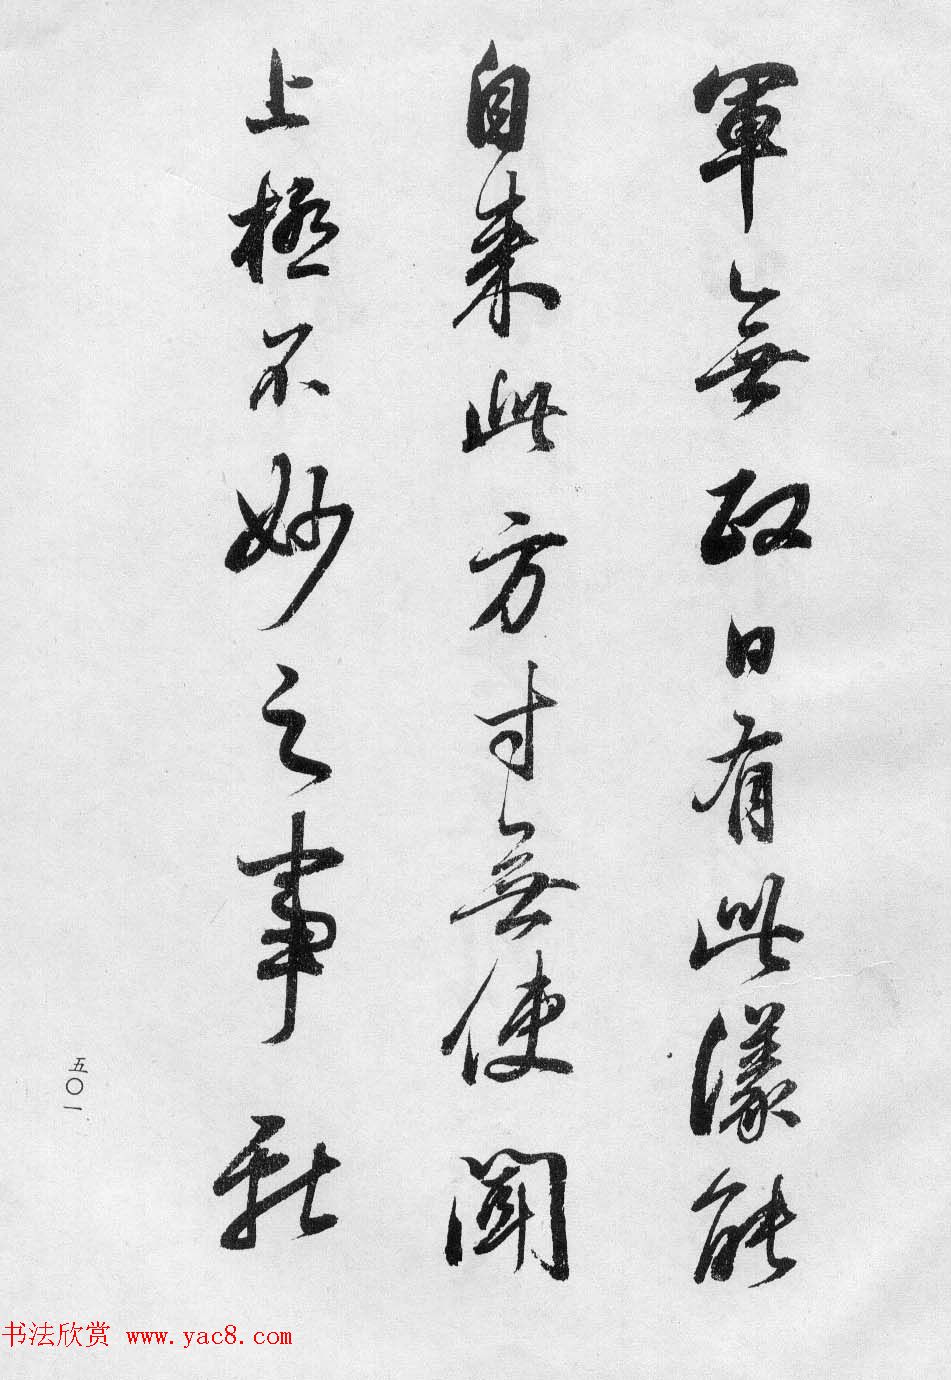 軍無政日有此儀能
自来此方寸無使闻
上極不妙之事
五〇一
书法欣赏 www.yac8.com